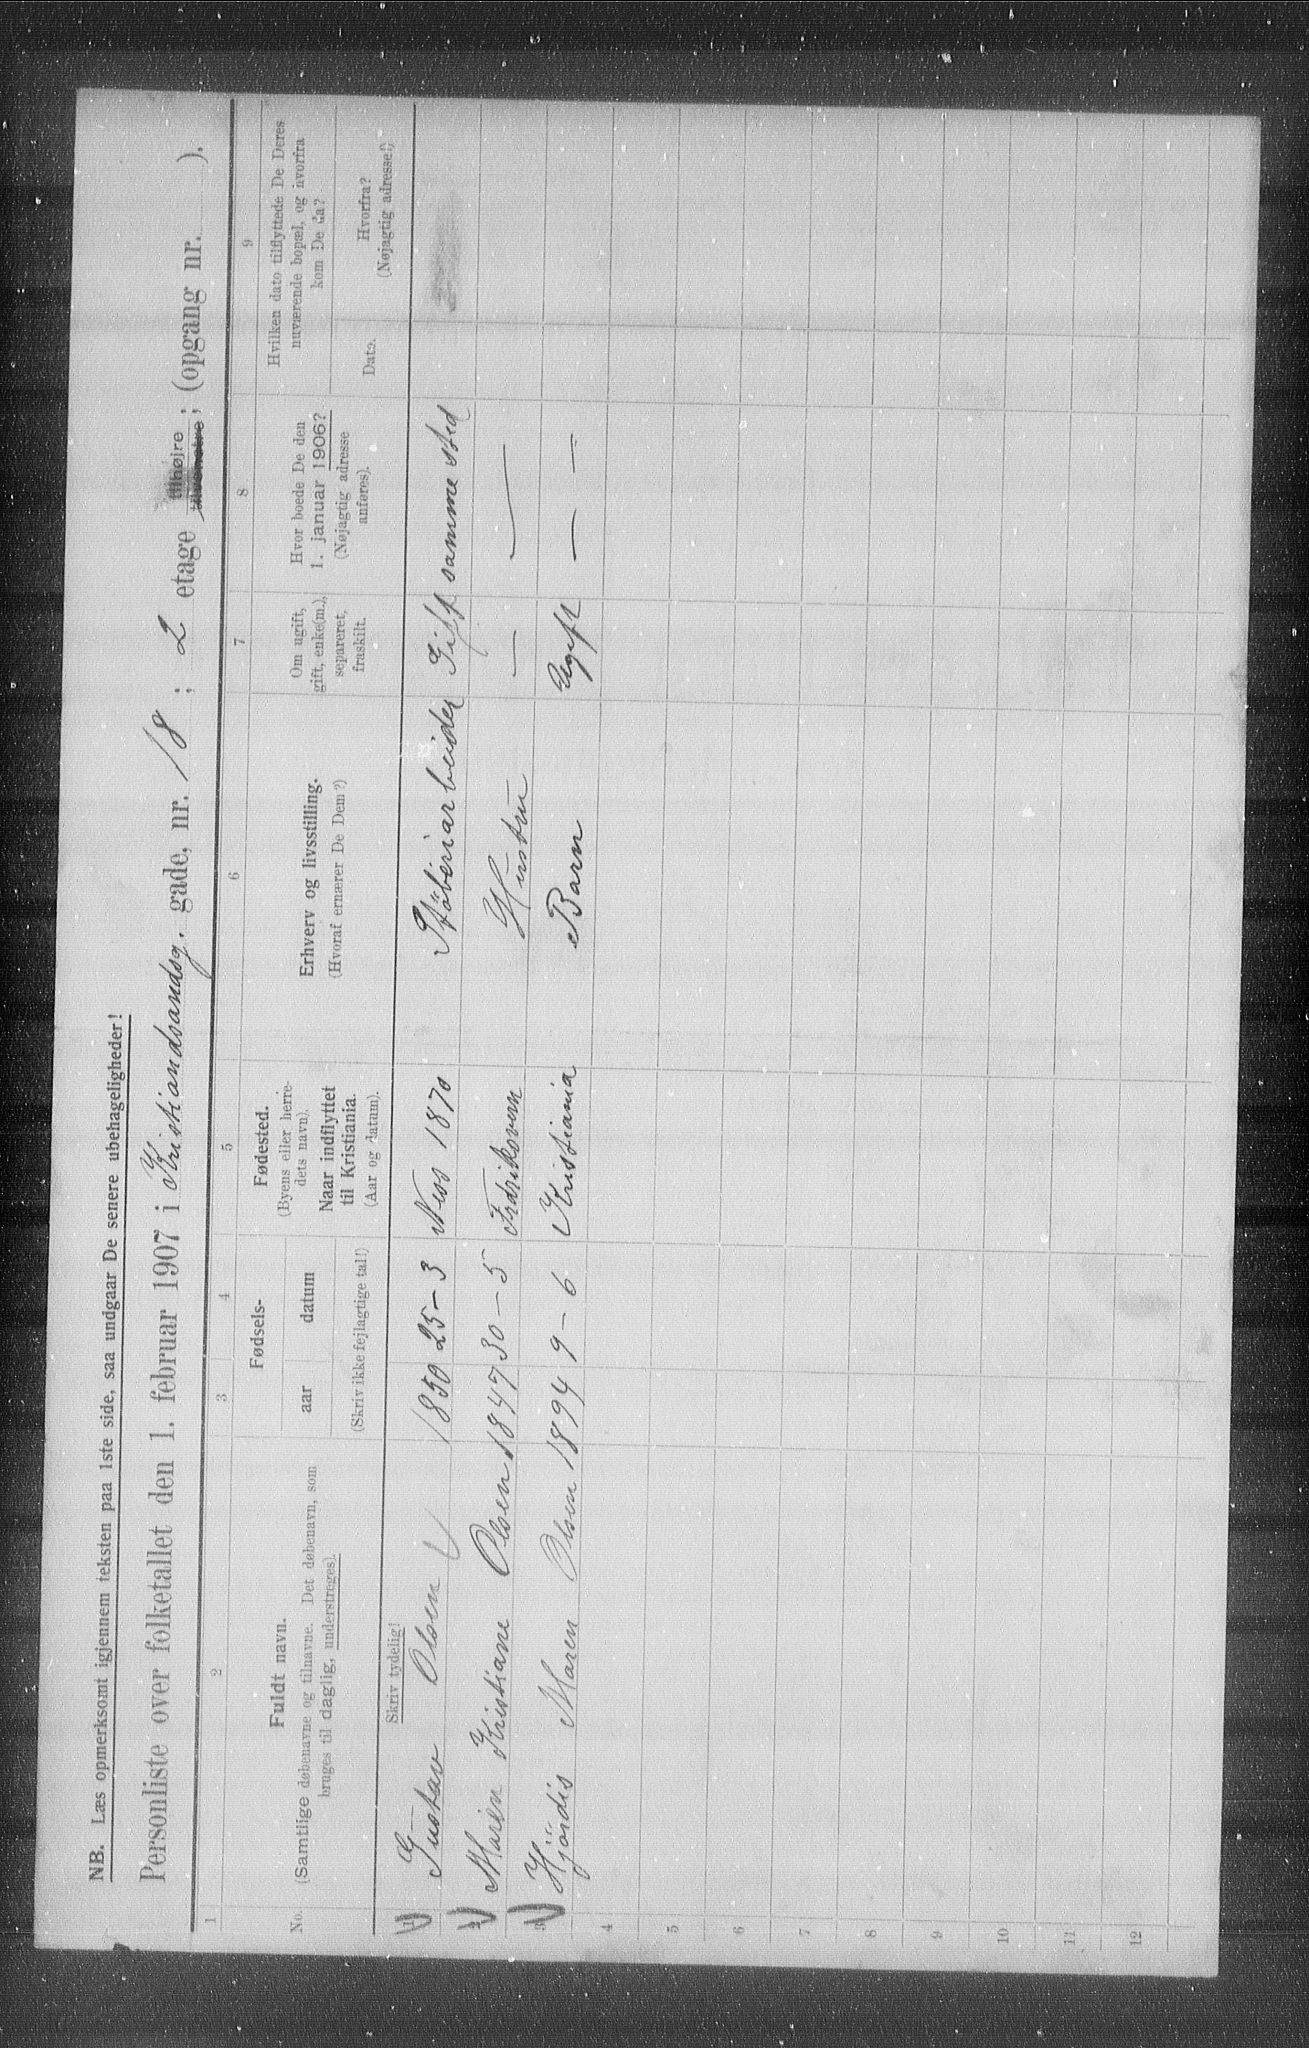 NB. Læs opmerksomt igjennem teksten paa 1ste side, saa undgaar De senere ubehageligheder!
Personliste over folketallet den 1. februar 1907 i Kristiandsandsg. gade, nr. 18; 2 etage tilhøjre tilvenstre; (opgang nr. ).
1 2 3 4 5 6 7 8 9
No.
Fuldt navn.
(Samtlige døbenavne og tilnavne. Det døbenavn, som
bruges til daglig, understreges).
Skriv tydelig!
Fødsels-
aar datum
(Skriv ikke fejlagtige tal!)
Fødested.
(Byens eller herre-
dets navn).
Naar indflyttet
til Kristiania.
(Aar og datum).
Erhverv og livsstilling.
(Hvoraf ernærer De Dem?)
Om ugift,
gift, enke(m.),
separeret,
fraskilt.
Hvor boede De den
1. januar 1906?
(Nøjagtig adresse
anføres).
Hvilken dato tilflyttede De Deres
nuværende bopæl, og hvorfra
kom De da?
Dato.
Hvorfra?
(Nøjagtig adresse!)
1 Gustav Olsen 1850 25-3 Ness 1870 Stöberiarbeider Gift samme sted
2 Maren Kristiane Olsen 1847 30-5 Fredriksværn Hustru — —
3 Hjördis Maren Olsen 1894 9-6 Kristiania Barn Ugift — —
4
5
6
7
8
9
10
11
12